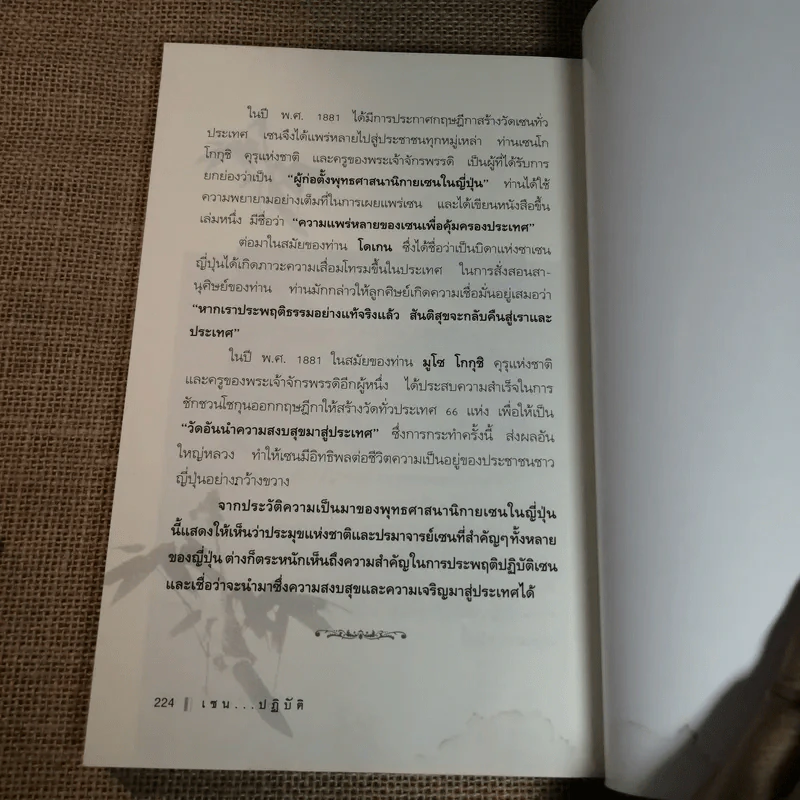 ในปี พ.ศ. 1881 ได้มีการประกาศกฤษฎีกาสร้างวัดเซนทั่ว
ประเทศ เซนจึงได้แพร่หลายไปสู่ประชาชนทุกหมู่เหล่า ท่านเซนโก
โกกุชิ คุรุแห่งชาติ และครูของพระเจ้าจักรพรรดิ เป็นผู้ที่ได้รับการ
ยกย่องว่าเป็น "ผู้ก่อตั้งพุทธศาสนานิกายเซนในญี่ปุ่น" ท่านได้ใช้
ความพยายามอย่างเต็มที่ในการเผยแพร่เซน และได้เขียนหนังสือขึ้น
เล่มหนึ่ง มีชื่อว่า "ความแพร่หลายของเซนเพื่อคุ้มครองประเทศ"
ต่อมาในสมัยของท่าน โดเกน ซึ่งได้ชื่อว่าเป็นบิดาแห่งซาเซน
ญี่ปุ่นได้เกิดภาวะความเสื่อมโทรมขึ้นในประเทศ ในการสั่งสอนสา-
นุศิษย์ของท่าน ท่านมักกล่าวให้ลูกศิษย์เกิดความเชื่อมั่นอยู่เสมอว่า
"หากเราประพฤติธรรมอย่างแท้จริงแล้ว สันติสุขจะกลับคืนสู่เราและ
ประเทศ"
ในปี พ.ศ. 1881 ในสมัยของท่าน มูโซ โกกุชิ คุรุแห่งชาติ
และครูของพระเจ้าจักรพรรดิอีกผู้หนึ่ง ได้ประสบความสำเร็จในการ
ชักชวนโชกุนออกกฤษฎีกาให้สร้างวัดทั่วประเทศ 66 แห่ง เพื่อให้เป็น
"วัดอันนำความสงบสุขมาสู่ประเทศ" ซึ่งการกระทำครั้งนี้ ส่งผลอัน
ใหญ่หลวง ทำให้เซนมีอิทธิพลต่อชีวิตความเป็นอยู่ของประชาชนชาว
ญี่ปุ่นอย่างกว้างขวาง
จากประวัติความเป็นมาของพุทธศาสนานิกายเซนในญี่ปุ่น
นี้แสดงให้เห็นว่าประมุขแห่งชาติและปรมาจารย์เซนที่สำคัญๆทั้งหลาย
ของญี่ปุ่น ต่างก็ตระหนักเห็นถึงความสำคัญในการประพฤติปฏิบัติเซน
และเชื่อว่าจะนำมาซึ่งความสงบสุขและความเจริญมาสู่ประเทศได้
224 เซน...ปฏิบัติ